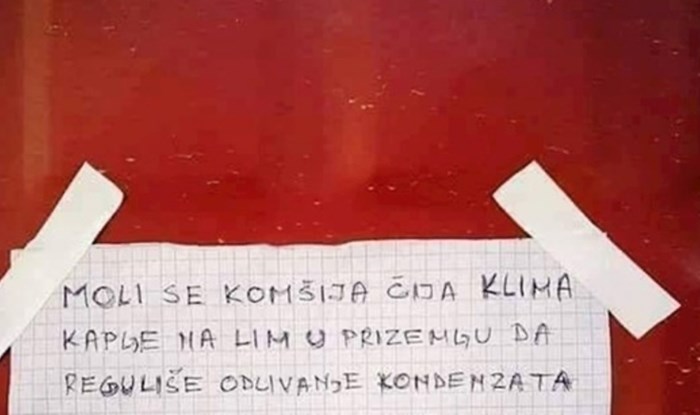 MOLI SE KOMŠIJA ČIJA KLIMA
KAPLJE NA LIM U PRIZEMLJU DA
REGULIŠE ODLIVANJE KONDENZATA